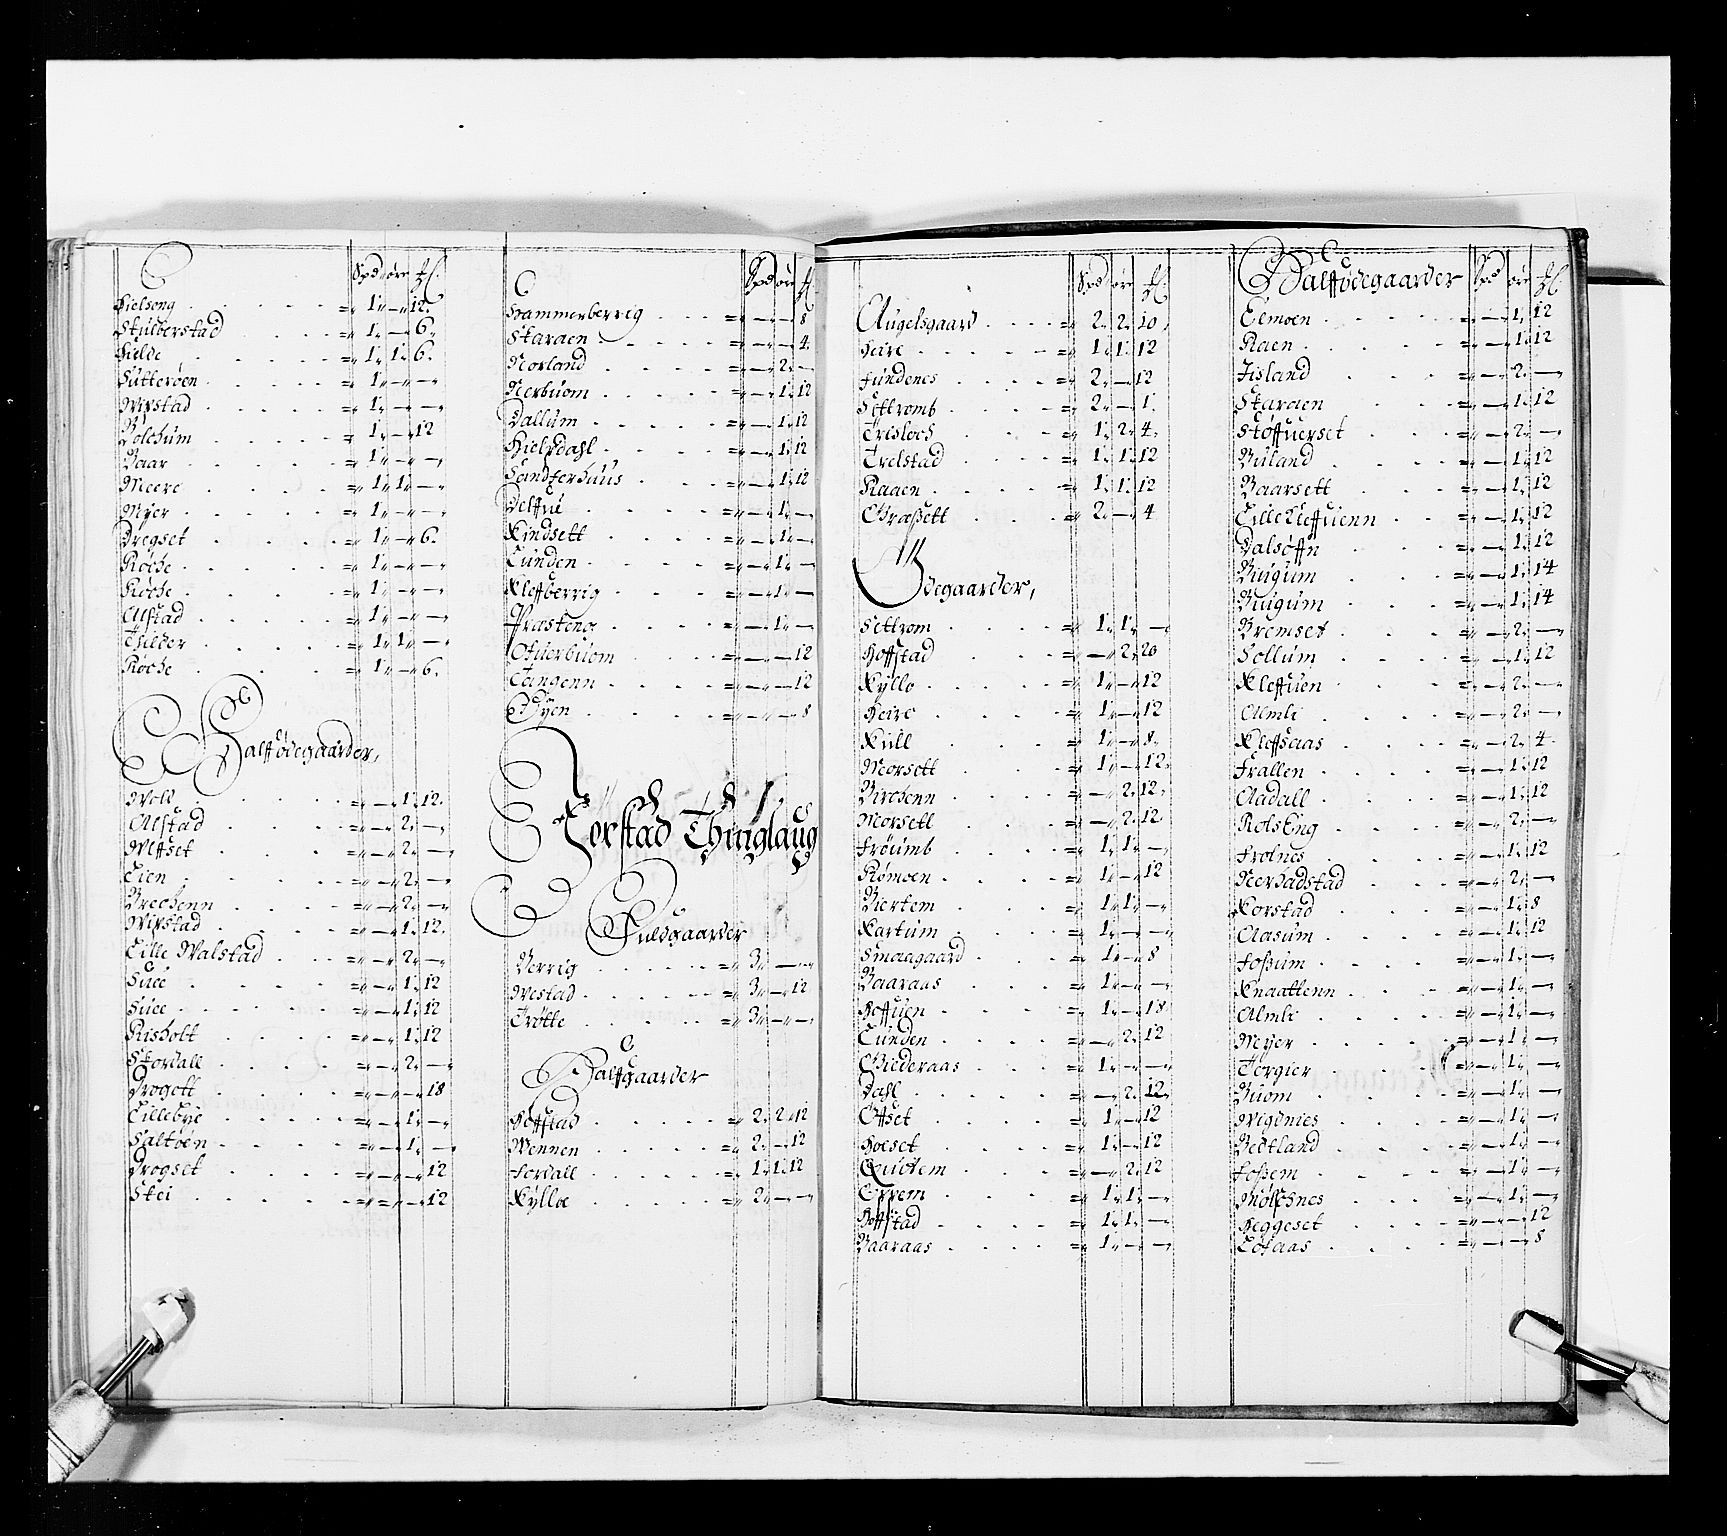 Spd ører ℔
Hielsong = 1 — 12
Skulberstad = 1 — 6
Hielde = 1 1 6
Sutterøen = 1 — —
Wirstad = 1 — —
Bolchum = 1 — 12
Baar = 1 — —
Meere = 1 1 —
Myer = 1 — —
Dregset = 1 — 6
Røche = 1 — —
Røche = 1 — —
Alstad = 1 — —
Thilder = 1 1 —
Røche = 1 — 6
Halffødegaarder,
Woll = — 1 12
Alstad = — 2 —
Weffset = — 2 —
Lien = — 2 —
Brechenn = — 2 —
Wirstad = — 1 12
Lille Walstad = — 2 —
Suee = — 1 12
Suee = — 1 12
Risholt = — 1 12
Stordall = — 2 —
Drogott = — — 18
Lillebye = — 1 —
Saltøen = — 1 —
Drogset = — — 12
Stei = — — 12
Spd ører ℔
Hammerberrig = — — 8
Skaraen = — — 4
Norland = — 2 —
Nerbuom = — 1 12
Dallum = — 1 12
Hielpdahl = — 1 12
Sandferhuus = — 1 12
Delffue = — 1 —
Kindsett = — 1 —
Lunden = — 1 —
Kleffberrig = — 1 —
Præsteng = — 1 —
Ofuerbuom = — — 12
Tangenn = — — 12
Øyen = — — 8
Korstad Thinglaug
Fuldgaarder
Berrig = 3 — —
Westad = 3 — 12
Trøtte = 3 — —
Halffgaarder
Hoffstad = 2 2 12
Wennen = 2 — 12
Fordall = 1 1 12
Kylloe = 2 — —
Spd ører ℔
Augelsgaard = 2 2 10
Heire = 1 1 12
Fundenes = 2 — 12
Settromb = 2 — 1
Trisloch = 1 2 4
Trelstad = 1 1 12
Raaen = 1 1 12
Græssett = 2 — 4
Ødegaarder,
Settrom = 1 1 —
Hoffstad = — 2 20
Kyllo = 1 — 12
Heire = 1 — 12
Kuill = 1 — 8
Morsett = 1 — 12
Birchenn = — 2 12
Morsett = — 2 12
Frøiumb = 1 1 —
Rømoen = 1 — 12
Biertem = 1 1 —
Kartum = 1 — —
Smaagaard = 1 — 8
Baaraas = 1 — —
Hoffuen = 1 — 18
Lunden = — 2 12
Giederaas = 1 — —
Dahl = — 2 12
Offset = 1 — 12
Hoeset = 1 — 12
Quidem = — 2 12
Errem = 1 1 —
Hoffstad = 1 1 —
Baaraas = 1 — —
Halffødegaarder Spd ører ℔
Elmoen = — 1 12
Raen = — 1 12
Fisland = — 2 —
Skaraen = — 1 12
Støffuerset = — 2 —
Buland = — 1 12
Baarsett = — 1 12
Lille Kleffuenn = — 1 12
Dalsøffn = — 1 12
Buigum = — 1 14
Buigum = — 1 14
Bremset = — 2 —
Sollum = — 1 12
Kleffuen = — 2 —
Almli = — 2 —
Kleffsaas = — 2 4
Frallen = — 1 12
Aadall = — 1 12
Rolseng = — 2 —
Frolnes = — 1 12
Nerhadstad = — 2 —
Korstad = — 1 8
Aasum = — 1 12
Fossum = — 1 —
Knaattenn = — 1 —
Almli = — 1 —
Meyer = — 1 —
Torgier = — 1 —
Buom = — 1 —
Wigdnies = — 1 —
Bedtland = — 1 —
Fossem = — 1 —
Mølchnes = — 1 —
Heggeset = — — 12
Lofaas = — — 8